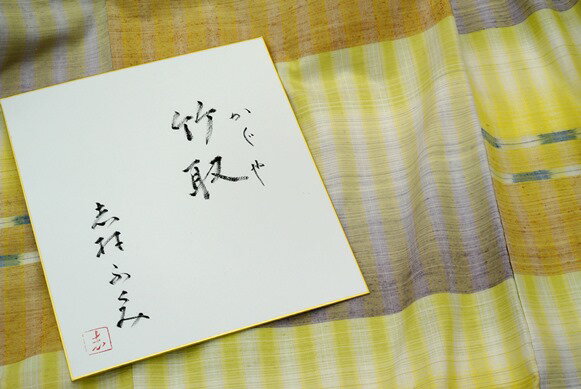 かぐや
竹取
志村ふくみ
志